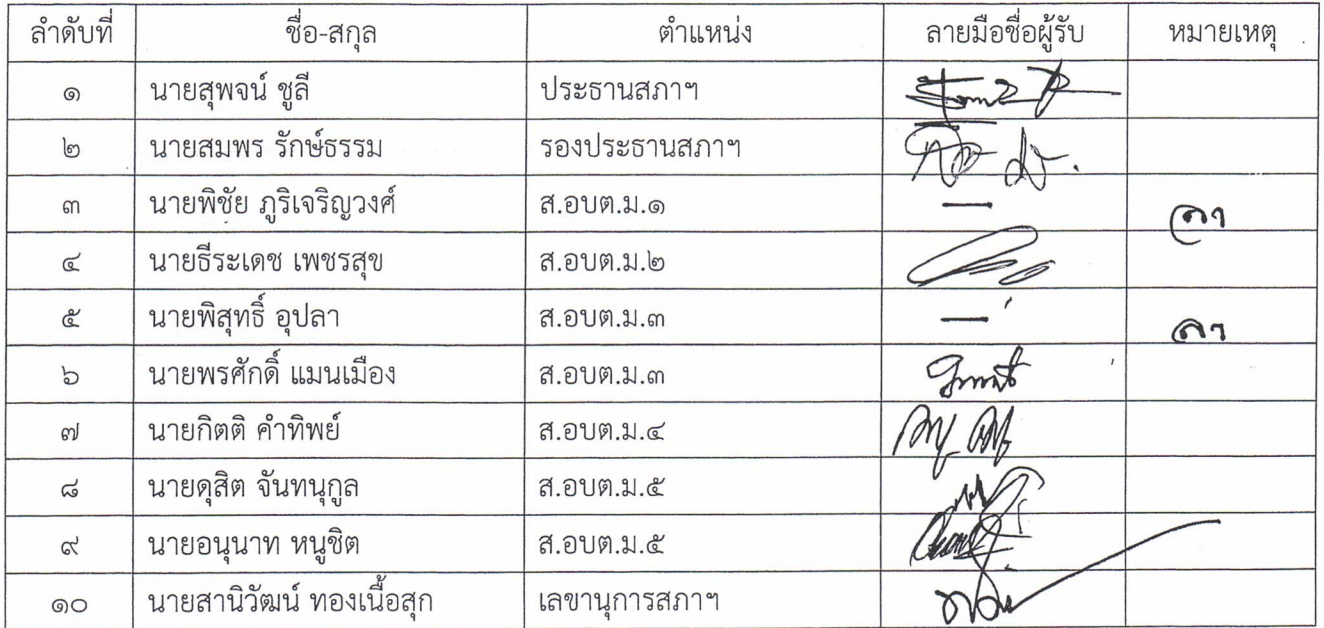 ลำดับที่ ชื่อ-สกุล ตำแหน่ง ลายมือชื่อผู้รับ หมายเหตุ
๑ นายสุพจน์ ชูลี ประธานสภาฯ
๒ นายสมพร รักษ์ธรรม รองประธานสภาฯ
๓ นายพิชัย ภูริเจริญวงศ์ ส.อบต.ม.๑ — ลา
๔ นายธีระเดช เพชรสุข ส.อบต.ม.๒
๕ นายพิสุทธิ์ อุปลา ส.อบต.ม.๓ — ลา
๖ นายพรศักดิ์ แมนเมือง ส.อบต.ม.๓
๗ นายกิตติ คำทิพย์ ส.อบต.ม.๔
๘ นายดุสิต จันทนุกูล ส.อบต.ม.๕
๙ นายอนุนาท หนูชิต ส.อบต.ม.๕
๑๐ นายสานิวัฒน์ ทองเนื้อสุก เลขานุการสภาฯ